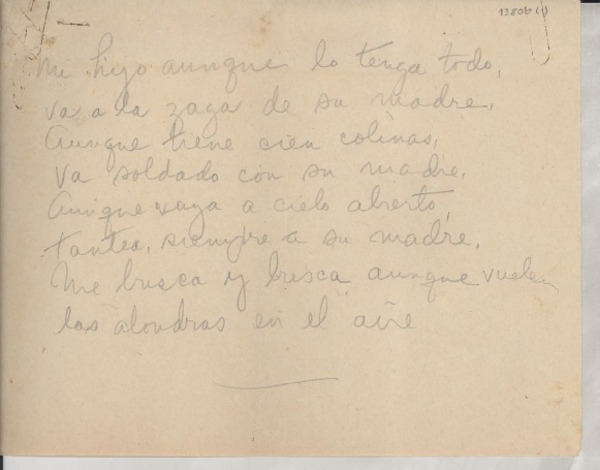 13806(1)
Mi hijo aunque lo tenga todo,
va a la zaga de su madre.
Aunque tiene cien colinas,
va soldado con su madre.
Aunque vaya a cielo abierto,
tantea, siempre a su madre.
Me busca y busca aunque vuelen
las alondras en el aire